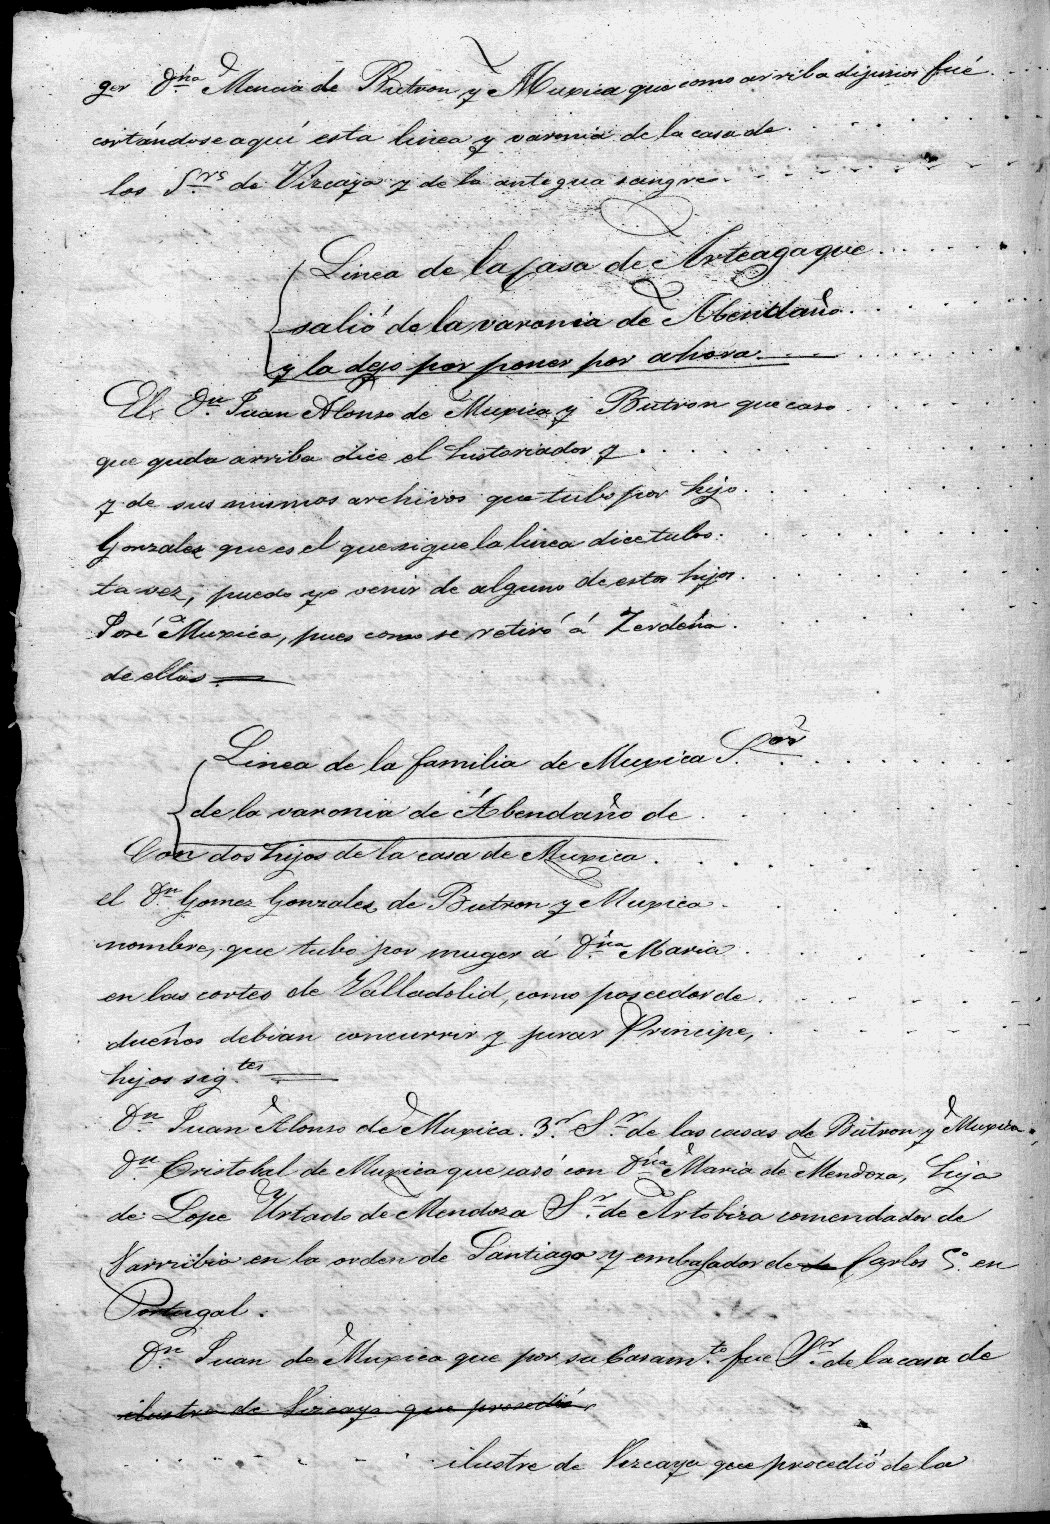 ger Dña Mencia de Butron y Muxica que como arriba dijimos fué
cortándose aquí esta linea y varonia de la casa de
los Srs de Vizcaya y de la antegua sangre.
Linea de la Casa de Arteaga que
salió de la varonia de Abendaño
y la dejo por poner por ahora.
El Dn Juan Alonso de Muxica y Butron que caso
que queda arriba dice el historiador y
y de sus mismos archivos que tubo por hijo
Gonzalez que es el que sigue la linea dice tubo
ta vez, puedo yo venir de alguno de estos hijos
José Muxica, pues como se retiró á Zerdeña
de ellos
Linea de la familia de Muxica Sor
de la varonia de Abendaño de
Con dos hijos de la casa de Muxica
el Dn Gomez Gonzalez de Butron y Muxica
nombre, que tubo por muger á Dña Maria
en las cortes de Valladolid, como poseedor de
dueños debian concurrir y jurar Principe,
hijos sig.tes
Dn Juan Alonso de Muxica. 3r Sr de las casas de Butron y Muxica
Dn Cristobal de Muxica que casó con Dña Maria de Mendoza, hija
de Lope Urtado de Mendoza Sr de Artobiza comendador de
Varribia en la orden de Santiago y embajador de de Carlos 5o en
Portugal.
Dn Juan de Muxica que por su Casam.to fue Sr de la casa de
ilustre de Vizcaya que procedió
ilustre de Vizcaya que procedió de la